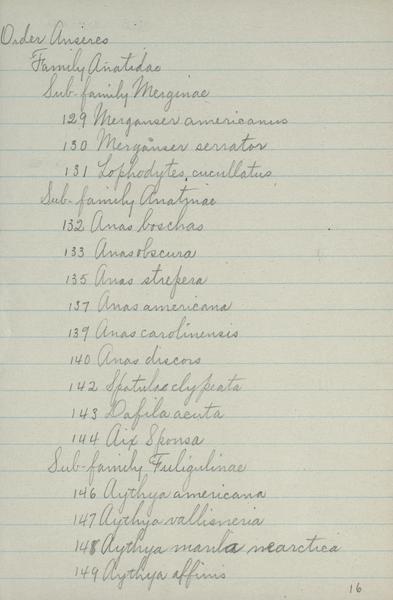 Order Anseres
Family Anatidae
Sub-family Merginae
129 Merganser americanus
130 Merganser serrator
131 Lophodytes cucullatus
Sub-family Anatinae
132 Anas boschas
133 Anas obscura
135 Anas strepera
137 Anas americana
139 Anas carolinensis
140 Anas discors
142 Spatula clypeata
143 Dafila acuta
144 Aix Sponsa
Sub-family Fuligulinae
146 Aythya americana
147 Aythya vallisneria
148 Aythya marila nearctica
149 Aythya affinis
16